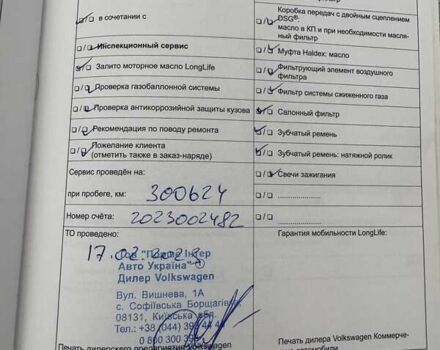 в сочетании с
Инспекционный сервис
Залито моторное масло LongLife
Проверка газобаллонной системы
Проверка антикоррозийной защиты кузова
Рекомендация по поводу ремонта
Пожелание клиента
(отметить также в заказ-наряде)
Сервис проведён на:
при пробеге, км: 300624
Номер счёта: 2023002482
ТО проведено:
17.02.
Авто Україна"
Дилер Volkswagen
Вул. Вишнева, 1А
с. Софіївська Борщагівка
08131, Київська обл.
Тел.: +38 (044) 39
0 800 300
Печать дилерского предприятия Volkswagen
Коробка передач с двойным сцеплением
DSG®:
масло в КП и при необходимости масля-
ный фильтр
Муфта Haldex: масло
Фильтрующий элемент воздушного
фильтра
Фильтр системы сжиженного газа
Салонный фильтр
Зубчатый ремень
Зубчатый ремень: натяжной ролик
Свечи зажигания
Гарантия мобильности LongLife:
Печать дилера Volkswagen Коммерче-